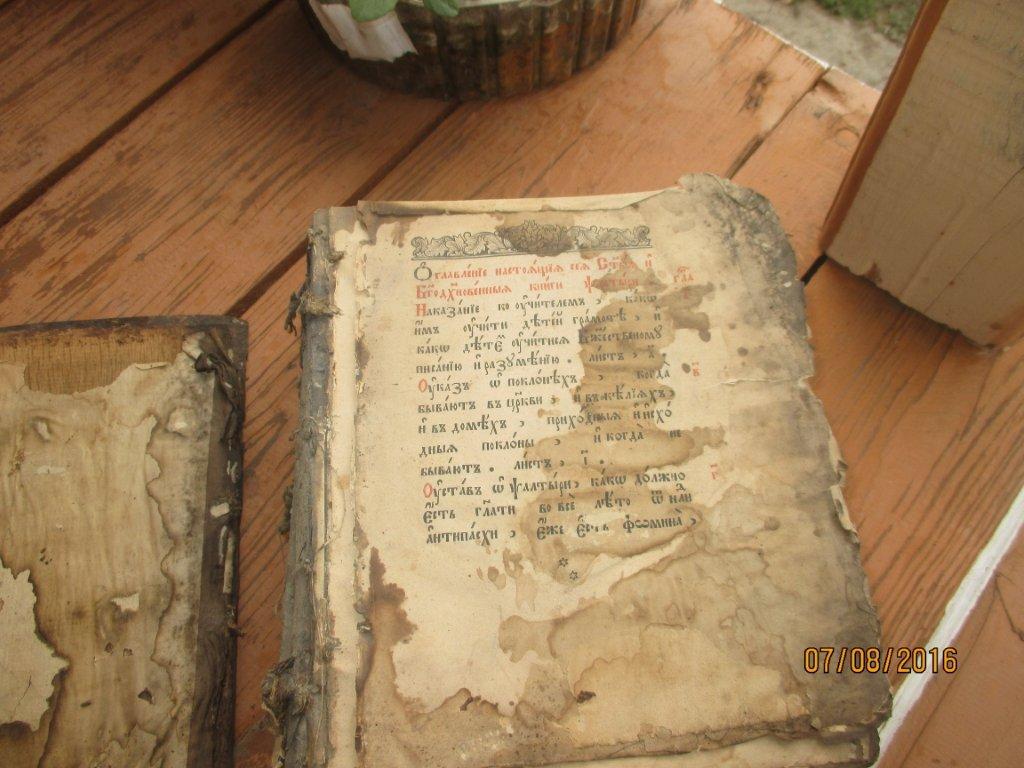 Ѻглавле́нїе настоѧ́щїѧ сеѧ̀ Ст҃ы́ѧ и҆
Бг҃одх҃нове́нныѧ кни́ги ѱалты́ри
Наказа́нїе ко ᲂу҆чи́телемъ, ка́кѡ
и҆̀мъ ᲂу҆чи́ти дѣте́й гра́мотѣ, и҆
ка́кѡ дѣ́темъ ᲂу҆чи́тисѧ бж҃е́ственомꙋ
писа́нїю и҆ разꙋмѣ́нїю. ли́стъ,
Оу҆ка́зъ ѡ҆ покло́нѣхъ, когда̀
быва́ютъ въ цр҃кви, и҆ въ ке́лїѧхъ,
и҆ въ домѣ́хъ, прихо́дныѧ и҆ и҆схо́
дныѧ покло́ны, и҆ когда̀ не
быва́ютъ. ли́стъ, і҃.
Оу҆ста́въ ѡ҆ ѱалты́ри, ка́кѡ до́лжно
є҆́сть гл҃ати во всѐ лѣ́то ѿ нд҃ли
а҆нтипа́схи, є҆́же є҆́сть ѳомина̀,
07/08/2016